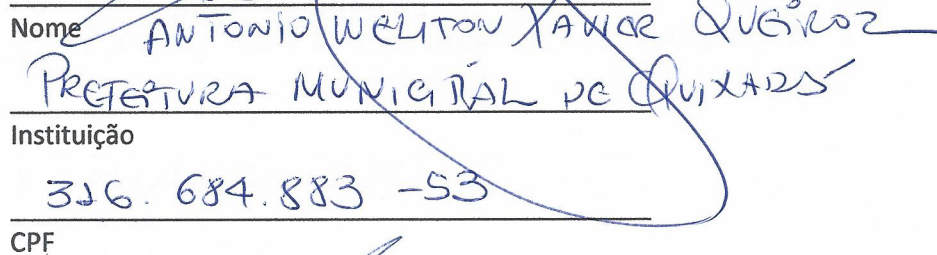 Nome ANTONIO WELITON XAVIER QUEIROZ
PREFEITURA MUNICIPAL DE QUIXADÁ
Instituição
316.684.883-53
CPF